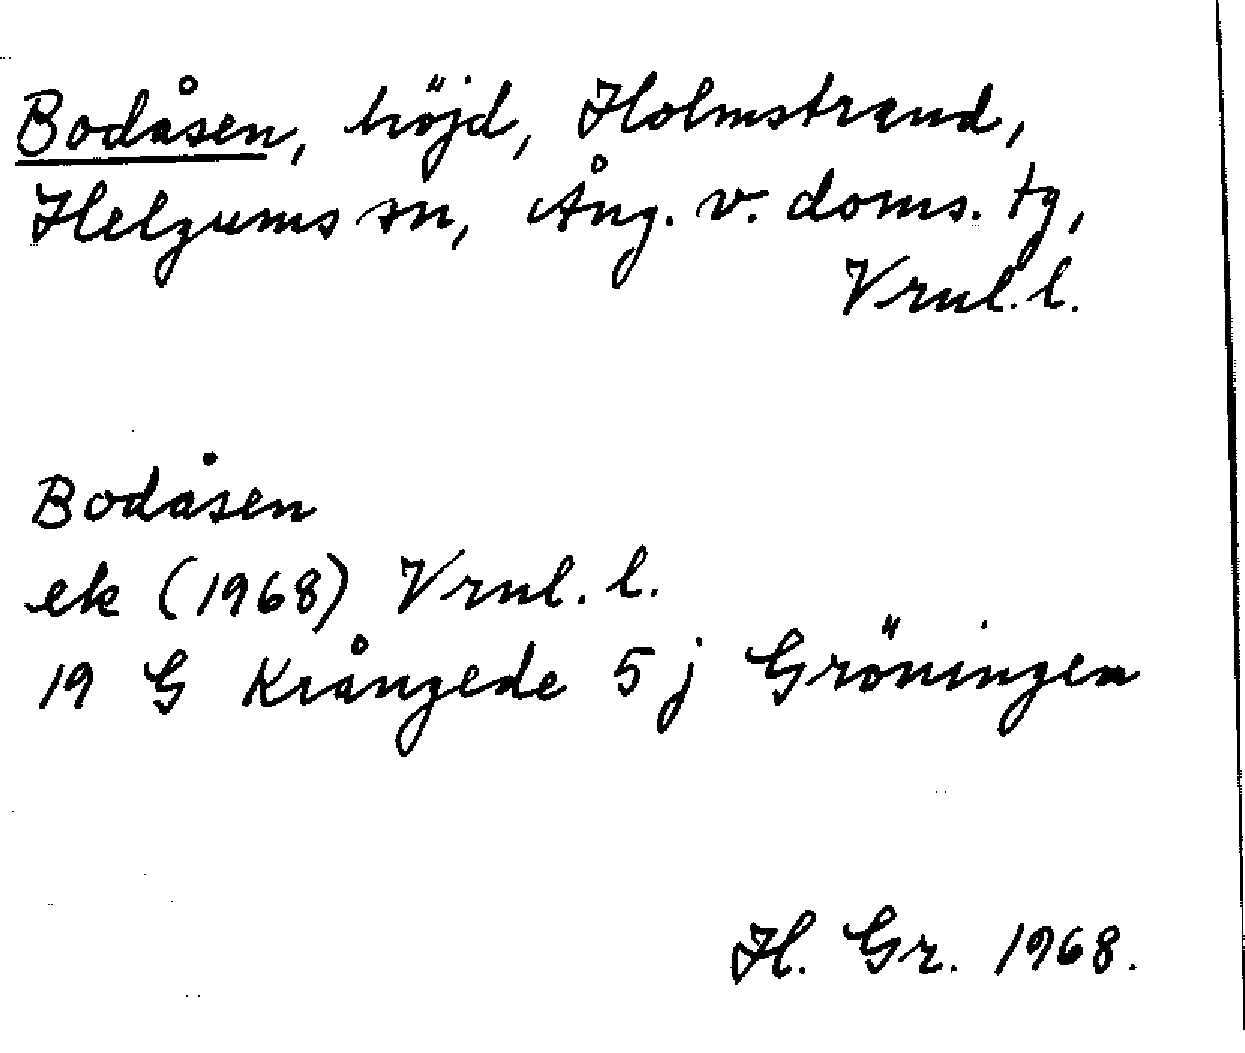 Bodåsen, höjd, Holmstrand,
Helgums sn, Ång. v. doms. tg,
Vrnl. l.
Bodåsen
ek (1968) Vrnl. l.
19 G Krångede 5 j Gröningen
H. Gr. 1968.